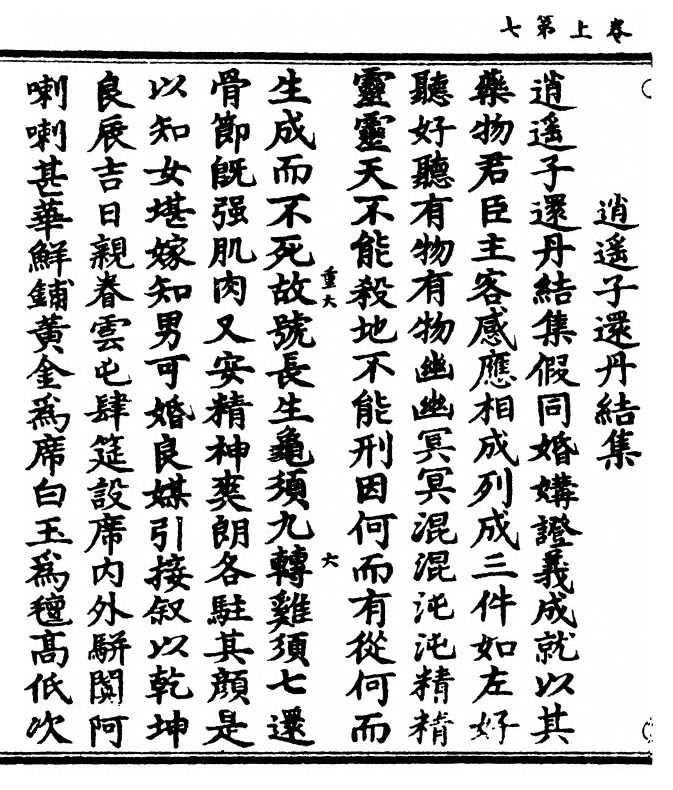 卷上第七
逍遥子還丹結集
逍遥子還丹結集假同婚媾證義成就以其
藥物君臣主客感應相成列成三件如左好
聽好聽有物有物幽幽冥冥混混沌沌精精
靈靈天不能殺地不能刑因何而有從何而
重大
六
生成而不死故號長生龜須九轉雞須七還
骨節旣强肌肉又安精神爽朗各駐其顔是
以知女堪嫁知男可婚良媒引接叙以乾坤
良辰吉日親眷雲屯肆筵設席内外駢闐阿
喇喇甚華鮮鋪黄金爲席白玉爲氊高低次